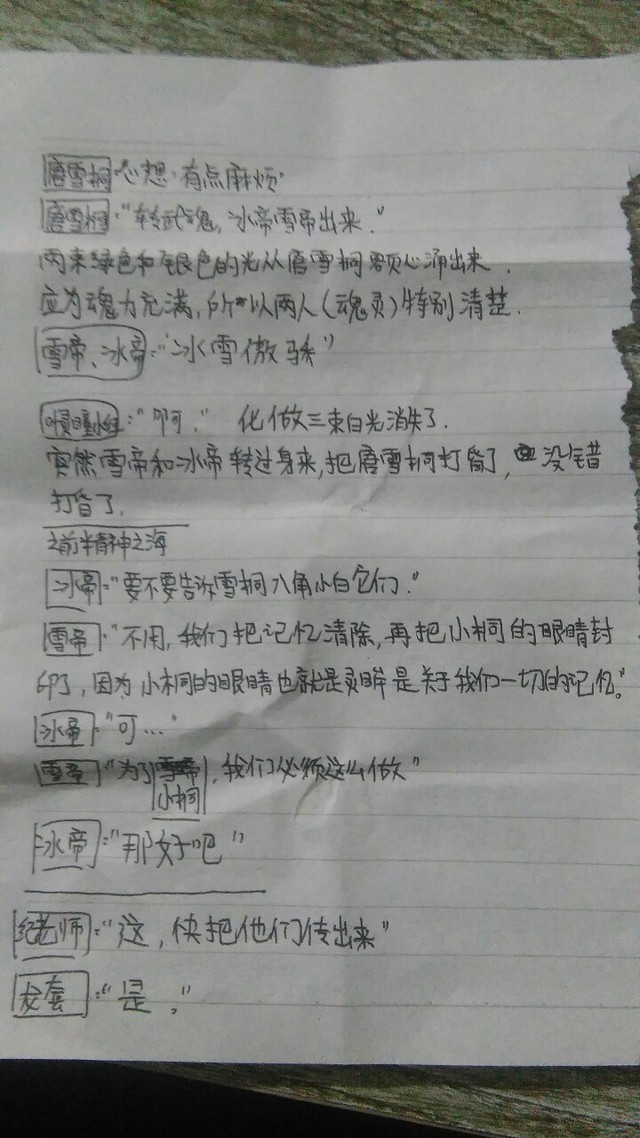 唐雪桐"心想:有点麻烦"
唐雪桐:"转武魂,冰帝雪帝出来."
两束绿色和银色的光从唐雪桐额心涌出来.
应为魂力充满,所以两人(魂灵)特别清楚.
雪帝、冰帝:"冰雪傲骄"
:"啊." 化做三束白光消失了.
突然雪帝和冰帝转过身来,把唐雪桐打昏了,没错
打昏了.
之前半精神之海
冰帝:"要不要告诉雪桐八角小白它们."
雪帝:"不用,我们把记忆清除,再把小桐的眼睛封
印了,因为小桐的眼睛也就是灵眸是关于我们一切的记忆。"
冰帝:"可…"
雪帝:"为了小桐,我们必须这么做"
冰帝:"那好吧"
纪老师:"这,快把他们传出来"
龙套:"是。"